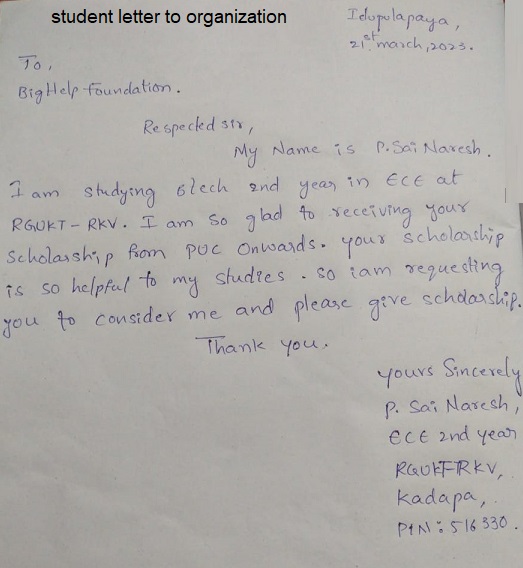 student letter to organization
Idupulapaya,
21st march, 2023.
To,
Big Help Foundation.
Respected sir,
My Name is P. Sai Naresh.
I am studying Btech 2nd year in ECE at
RGUKT - RKV. I am so glad to receiving your
Scholarship from PUC onwards. your scholarship
is so helpful to my studies. so iam requesting
you to consider me and please give scholarship.
Thank you.
yours Sincerely
P. Sai Naresh,
ECE 2nd year
RGUKT-RKV,
Kadapa,
PIN: 516330.